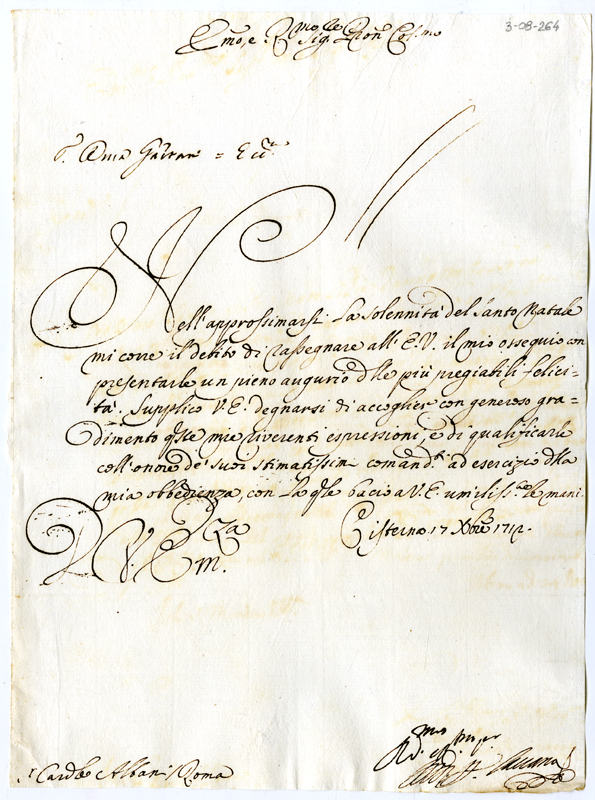 3-08-264
Em̃o, e R.mo Sig.re Pron Col.mo
Nell'approssimarsi La Solennità del Santo Natale
mi corre il debito di rassegnare all'E.V. il mio ossequio con
presentarle un pieno augurio d̃lle più pregiabili felici=
tà. Supplico V.E. degnarsi di accoglier con generoso gra=
dimento q̃ste mie riverenti espressioni, e di qualificarle
coll'onore de' suoi stimatissimi comand.ti ad esercizio d̃lla
mia obbedienza, con La q̃le bacio a V.E. umiliss.te le mani.
Cisterna 17 Xbre 1712.
V. Em.za
Card.le Albani Roma